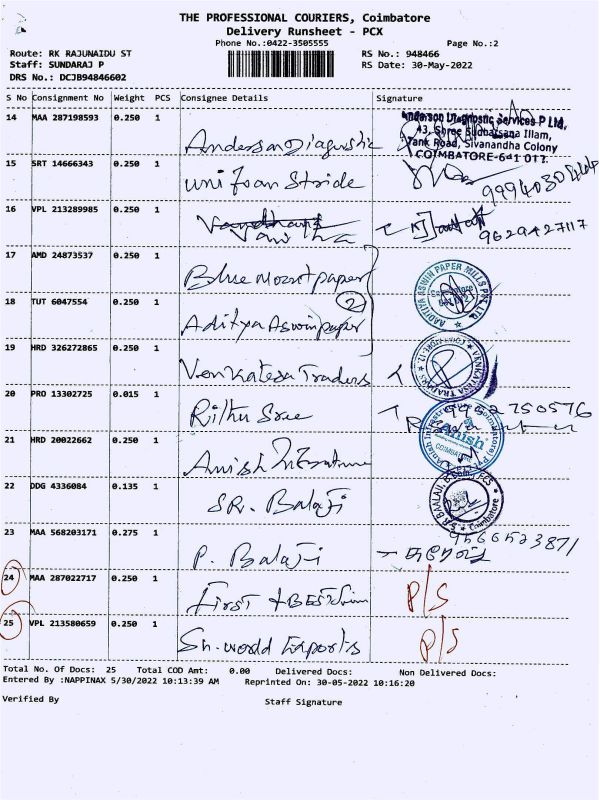 THE PROFESSIONAL COURIERS, Coimbatore
Delivery Runsheet - PCX
Phone No.:0422-3505555
Page No.:2
Route: RK RAJUNAIDU ST
RS No.: 948466
Staff: SUNDARAJ P
RS Date: 30-May-2022
DRS No.: DCJB94846602
S No Consignment No Weight PCS Consignee Details Signature
14 MAA 287198593 0.250 1
Anderson Diagnostic
Anderson Diagnostic Services P Ltd,
43, Shree Sudharsana Illam,
Tank Road, Sivanandha Colony
COIMBATORE-641 017.
15 SRT 14666343 0.250 1
uni foan Stride
16 VPL 213289985 0.250 1
Vanitha
9629427117
17 AMD 24873537 0.250 1
Blue Mount paper
AADITIYA ASWIN PAPER MILLS PVT LTD
18 TUT 6047554 0.250 1
2
Aditya Aswin paper
19 HRD 326272865 0.250 1
Venkatesa Traders
VENKATESA TRADERS
20 PRO 13302725 0.015 1
Rithu Sree
9962750576
21 HRD 20022662 0.250 1
Anish
Anish
COIMBATORE
22 DDG 4336084 0.135 1
SR. Balaji
Coimbatore
23 MAA 568203171 0.275 1
P. Balaji
24 MAA 287022717 0.250 1
First + BEST
P/S
25 VPL 213580659 0.250 1
Sh. world Exports
P/S
Total No. Of Docs: 25 Total COD Amt: 0.00 Delivered Docs: Non Delivered Docs:
Entered By :NAPPINAX 5/30/2022 10:13:39 AM Reprinted On: 30-05-2022 10:16:20
Verified By
Staff Signature